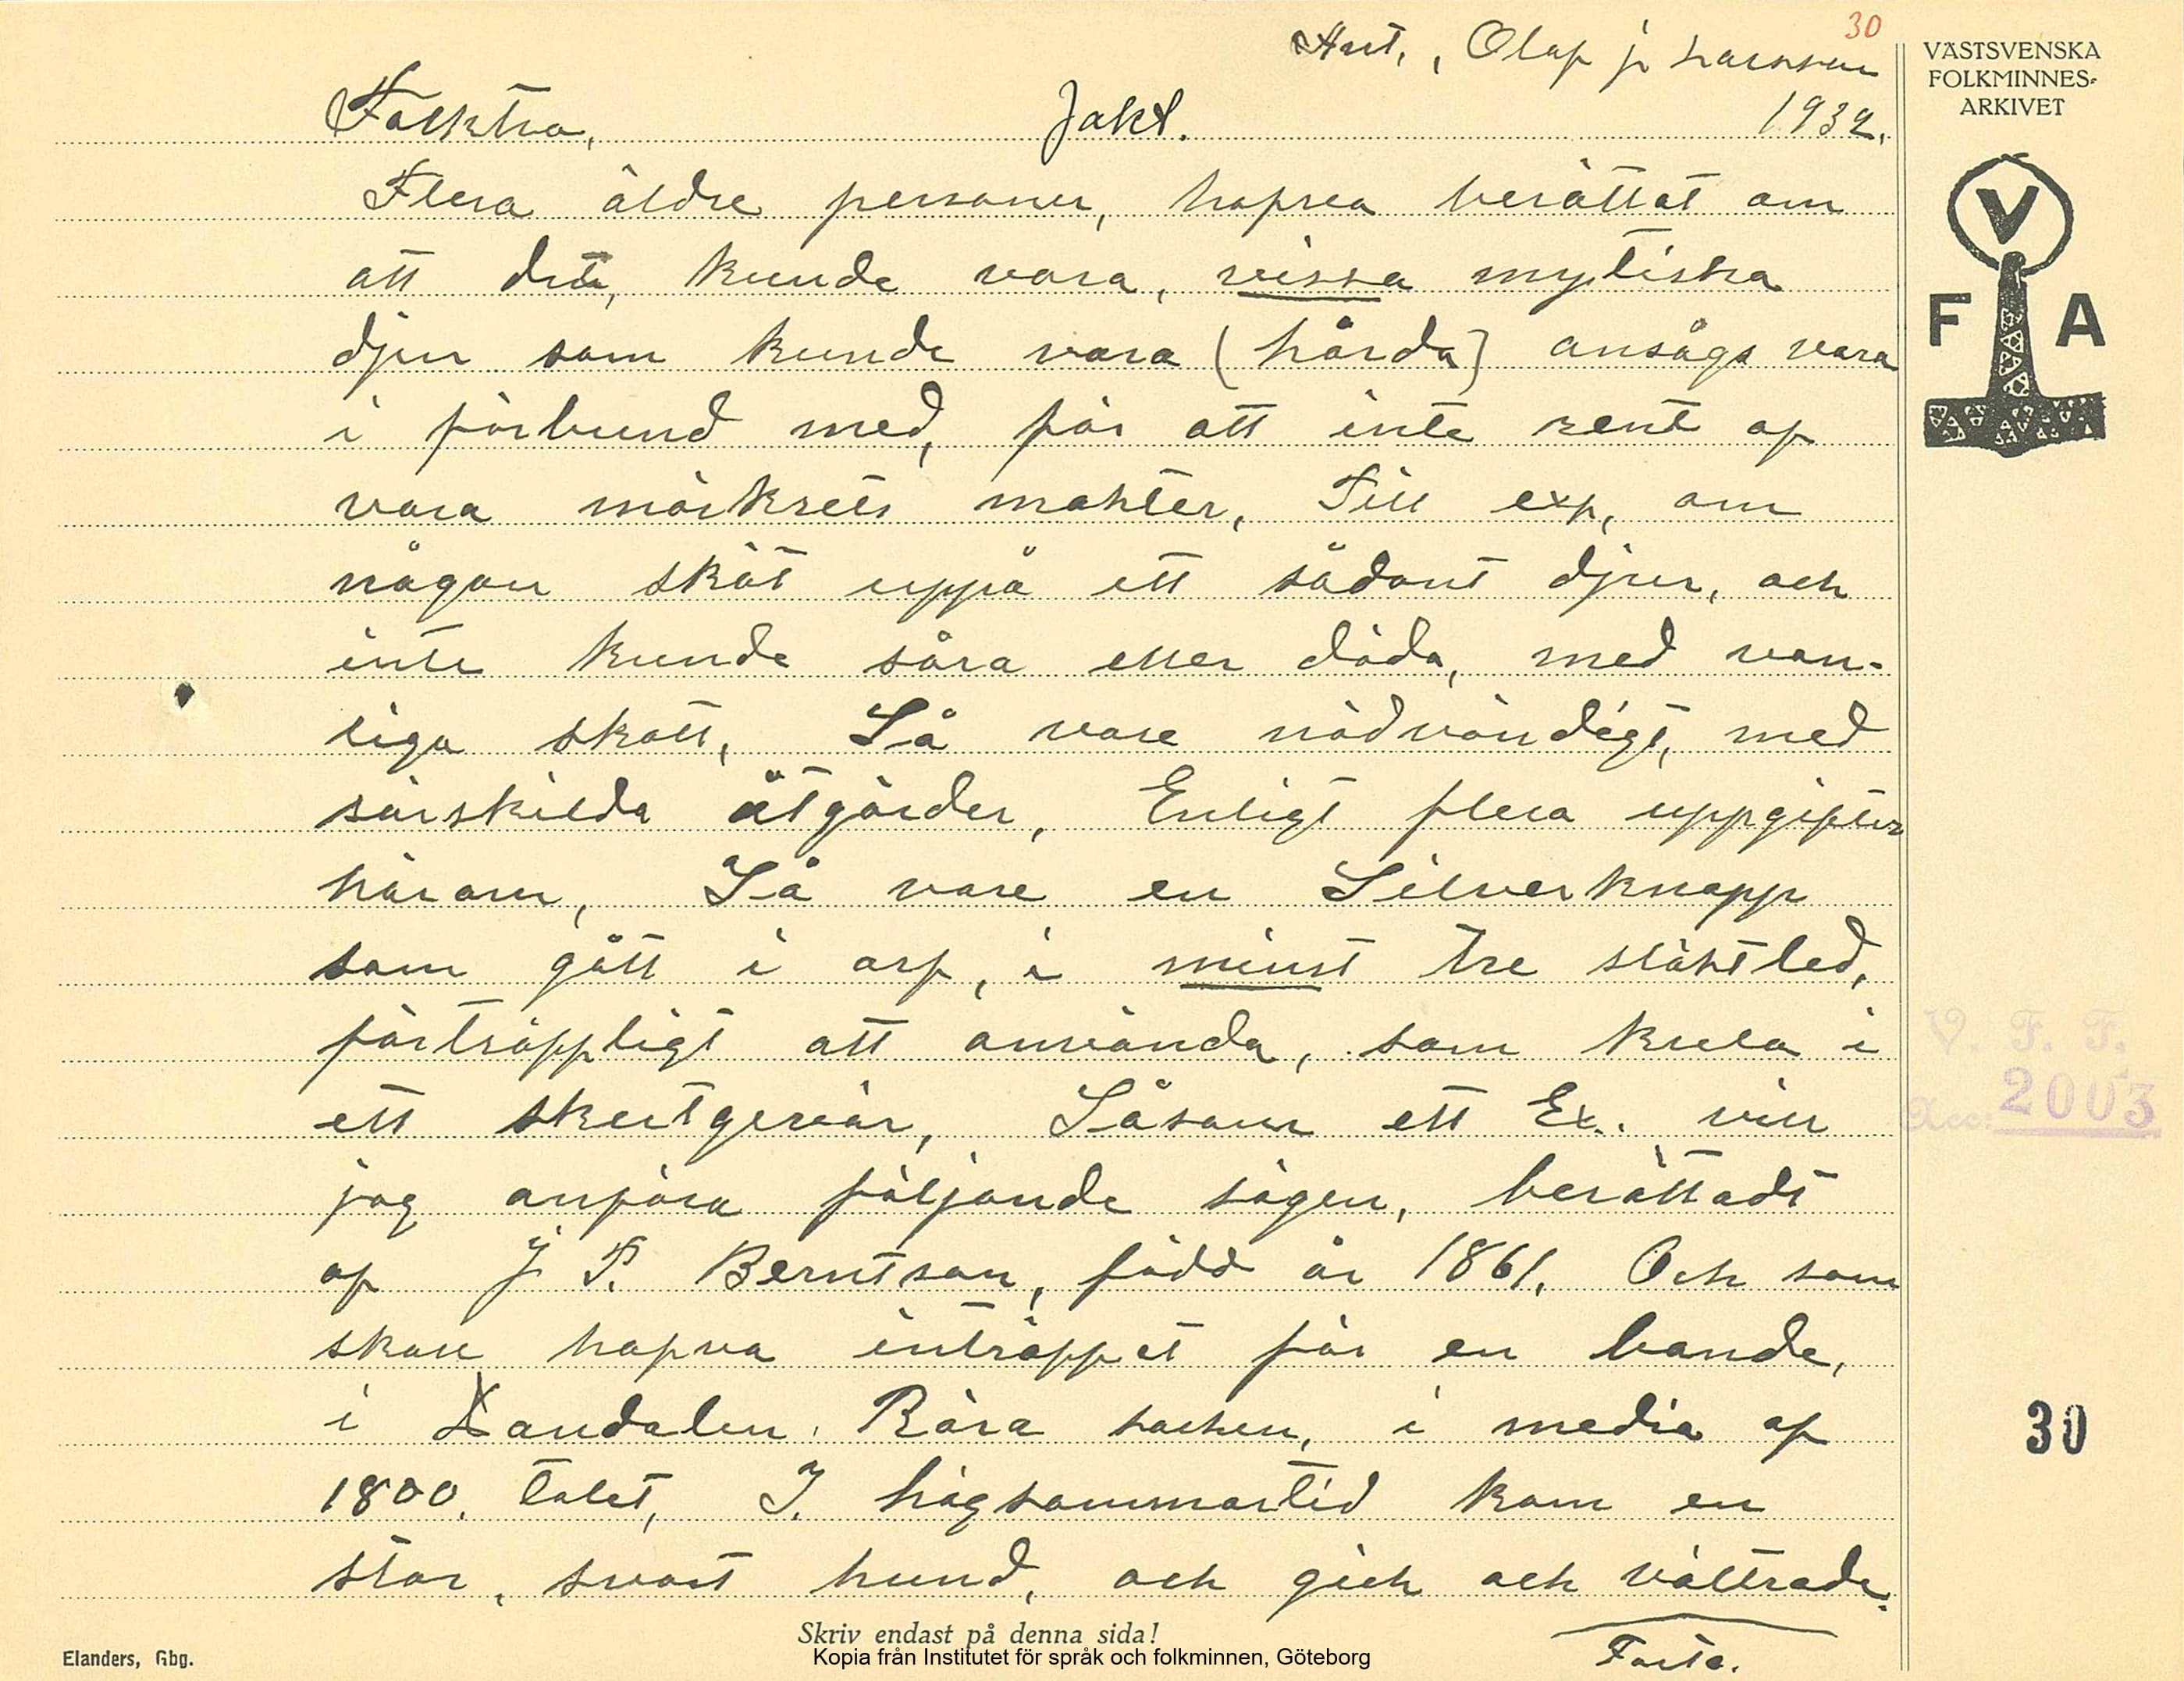 30
Ant., Olof j. Larsson
Folktro, Jakt. 1932.
VÄSTSVENSKA
FOLKMINNES-
ARKIVET
V
F A
Flera äldre personer, hafva berättat om
att det, kunde vara, vissa mytiska
djur som kunde vara (hårda) ansågs vara
i förbund med, för att inte rent af
vara mörkrets makter, Till exp, om
någon sköt uppå ett sådant djur, och
inte kunde såra eller döda, med van-
liga skott, Så vare nödvändigt, med
särskilda åtgärder, Enligt flera uppgifter
härom, Så vare en Silverknapp
som gått i arf, i minst tre släktled,
förträffligt att använda, som kula i
ett skeutgevär, Såsom ett Ex. vill
jag anföra följande sägen, berättadt
af J P. Berntson, född år 1861. Och som
skall hafva inträffat för en bonde,
i Sandalen. Röra socken, i media af
1800. talet, I. högsommartid kom en
stor, svart hund, och gick och vältrade.
Forts.
V. F. F.
Acc: 2003
30
Skriv endast på denna sida!
Elanders, Gbg.
Kopia från Institutet för språk och folkminnen, Göteborg